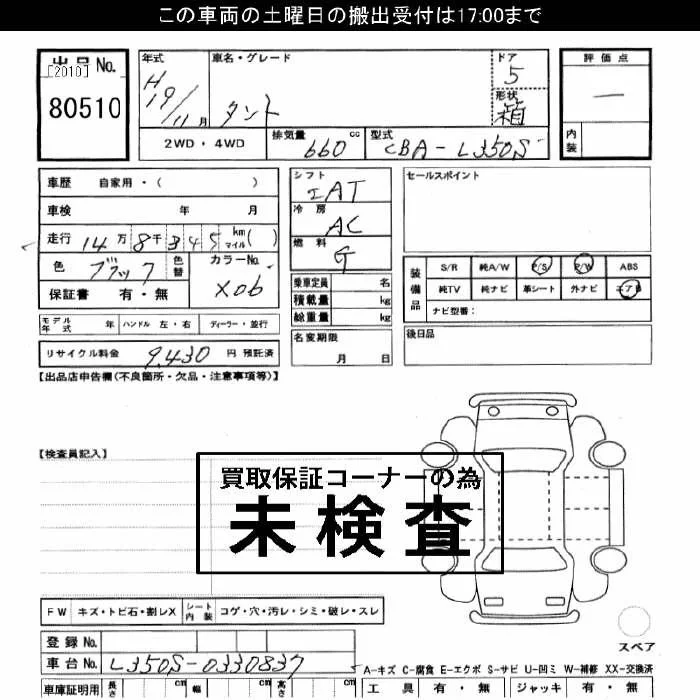 この車両の土曜日の搬出受付は17:00まで
出品No.
[2010]
80510
年式
H19/11月
車名・グレード
タント
ドア
5
形状
箱
評価点
―
内装
2WD・4WD
排気量 660 cc
型式 CBA-L350S
車歴 自家用・( )
車検 年 月
走行 14万8千345 km マイル( )
色 ブラック 色替
カラーNo. X06
保証書 有・無
シフト
IAT
冷房
AC
燃料
G
乗車定員 名
積載量 kg
総重量 kg
セールスポイント
装備品
S/R 純A/W P/S P/W ABS
純TV 純ナビ 革シート 外ナビ エアB
ナビ型番:
モデル年式 年 ハンドル 左・右 ディーラー・並行
名変期限
月 日
後日品
リサイクル料金 9,430 円 預託済
【出品店申告欄(不良箇所・欠品・注意事項等)】
【検査員記入】
買取保証コーナーの為
未検査
FW キズ・トビ石・割レX シート内装 コゲ・穴・汚レ・シミ・破レ・スレ
スペア
登録No.
車台No. L350S-0330837
A-キズ C-腐食 E-エクボ S-サビ U-凹ミ W-補修 XX-交換済
車庫証明用 長さ cm 幅 cm 高さ cm
工具 有・無 ジャッキ 有・無